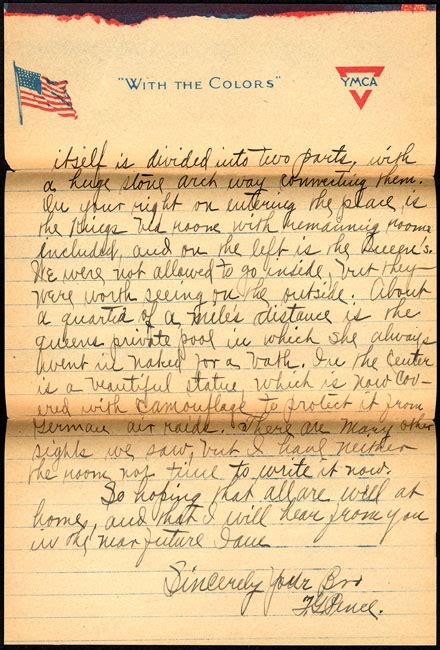 "WITH THE COLORS"
YMCA
itself is divided into two parts, with
a huge stone arch way connecting them.
On your right on entering the place, is
the Kings bed room with remanning rooms
included, and on the left is the Queen's.
We were not allowed to go inside, but they
were worth seeing on the outside. About
a quarter of a miles distance is the
queens private pool in which she always
went in naked for a bath. In the center
is a beautiful statue which is now cov-
ered with camouflage to protect it from
German air raids. There are many other
sights we saw, but I have neither
the room nor time to write it now.
So hoping that all are well at
home, and that I will hear from you
in the near future I am
Sincerely Your Bro
Pence.